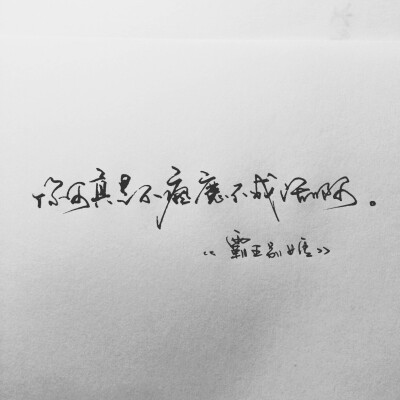 你可真是不瘋魔不成活啊。
《霸王别姬》